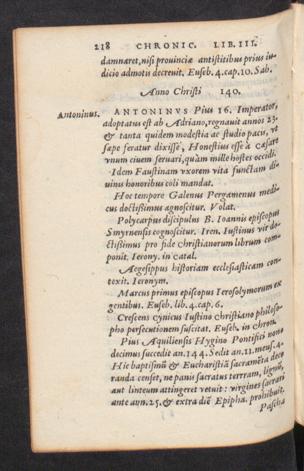 218 CHRONIC. LIB. III.
damnaret, nisi prouinciæ antistitibus prius iu-
dicio admotis decreuit. Euseb. 4. cap. 10. Sab.
Anno Christi 140.
Antoninus. ANTONINVS Pius 16. Imperator,
adoptatus est ab Adriano, regnauit annos 23.
& tanta quidem modestia ac studio pacis, vt
sæpe feratur dixisse, Honestius esse à Cæsare
vnum ciuem seruari, quàm mille hostes occidi.
Idem Faustinam vxorem vita functam di-
uinis honoribus coli mandat.
Hoc tempore Galenus Pergamenus medi-
cus doctissimus agnoscitur. Volat.
Polycarpus discipulus B. Ioannis episcopus
Smyrnensis cognoscitur. Iren. Iustinus vir do-
ctissimus pro fide christianorum librum com-
ponit. Ierony. in catal.
Aegesippus historiam ecclesiasticam con-
texit. Ieronym.
Marcus primus episcopus Ierosolymorum ex
gentibus. Euseb. lib. 4. cap. 6.
Crescens cynicus Iustino christiano philoso-
pho persecutionem suscitat. Euseb. in chron.
Pius Aquiliensis Hygino Pontifici nono
decimus succedit an. 144. Sedit an. 11. mens. 4.
Hic baptismũ & Eucharistiã sacramẽta deco
randa censet, ne panis sacratus terram, lignũ,
aut linteum attingeret vetuit: virgines sacrari
ante ann. 25. & extra diẽ Epipha. prohibuit.
Pascha